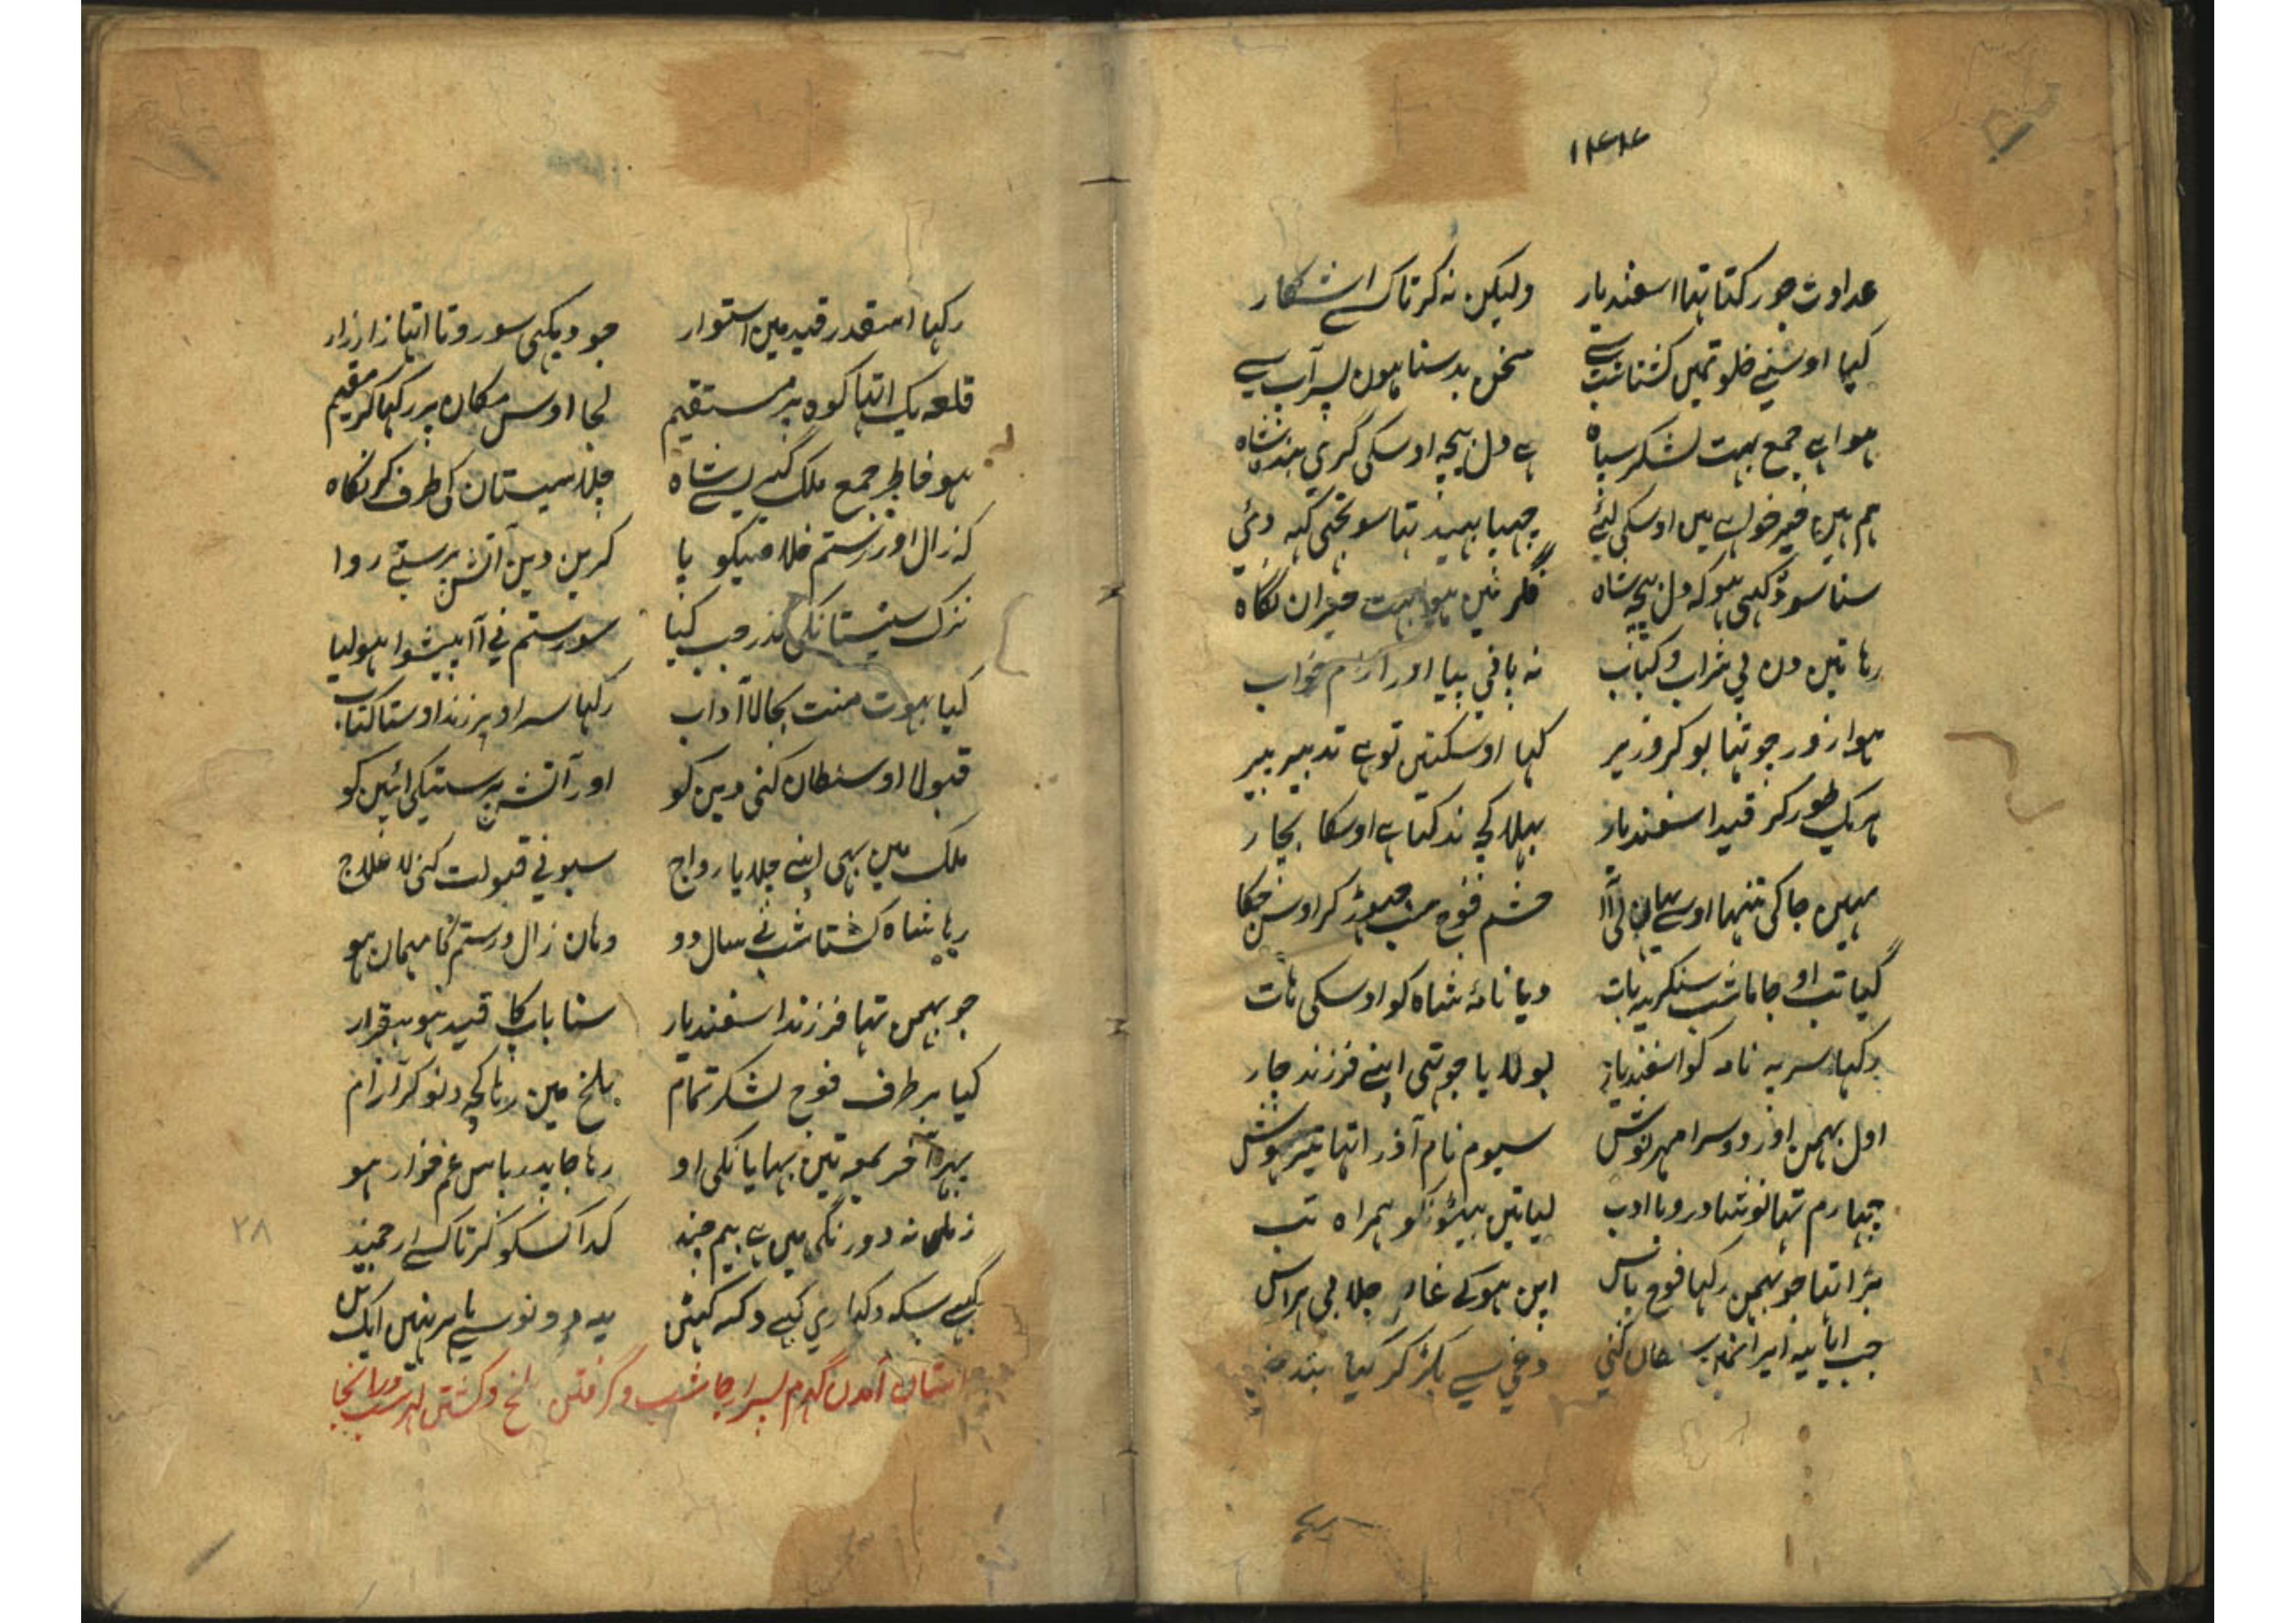 عداوت جو رکتا تها اسفندیار ولیکن نہ کرتا کسے اشکار
کیا اوسنے خلوتمیں گشتاشپ سے سخن بد سنا ہون پسر آپ سے
ہوا ہے جمع بہت لشکر سپاہ ہے دل بیچہ اوسکی کری بند شاہ
ہم ہیں خیر خواہ میں اوسکی لیئے چهپا بهید تها سو تجهی کہہ دئی
سنا سو دکهی ہو کہ دل بیچہ شاہ فکر میں ہوا بہت حیران نگاہ
رہا تین دن لی شراب و کباب نہ پانی پیا اور آرام خواب
ہوا زور جو تها بو کر وزیر کہا اوسکتیں تو ہے تدبیر پیر
ہریک طور کر قید اسفندیار بهلا کچہ ند کتا ہے اوسکا بچار
مہیں جا کی تنہا اوسے یہان لی آ حشم فوج سب چهوڑ کر اوس جکا
گیا تب او جاماشپ سنکر یہ بات دیا نامۂ شاہ کو اوسکی ہات
رکها سر پہ نامہ کو اسفندیار بولایا جو تهی اپنے فرزند چار
اول بہمن اور دوسرا مہرنوش سیوم نام آذر اتها تیز ہوش
چہارم تها نوشادر و باادب لیا تین بیٹونکو ہمراہ تب
بڑا تها جو بہمن رکها فوج پاس اپن ہو کے چلا بی ہراس
جب آیا یہ ایرانمیں سلطان کنی دغی سے پکڑ کر کیا بند
رکها اسقدر قید میں استوار جو دیکهی سو روتا اتها زار زار
قلعہ یک اتها کوہ پر مستقیم لجا اوس مکان پر رکها کر مقیم
ہو خاطر جمع ملک گیری سے شاہ چلا سیستان کی طرف کر نگاہ
کہ زال اور رستم خلاصیکو پا کریں دین آتش پرستی روا
نزک سیستانکی گذر جب کیا سو رستم نی آ پیشوا ہو لیا
کیا بہوت منت بجا لا آداب رکها سر اوپر زند اوستا کتاب
قبولا او سلطان کنی دین کو اور آتش پرستیکی ائین کو
ملک میں بهی اپنے چلایا رواج سبونی قبولت کئی لاعلاج
رہا شاہ گشتاشپ نے سال دو وہان زال و رستم کا مہمان ہو
جو بہمن تها فرزند اسفندیار سنا باپ کا قید ہو بیقرار
کیا بر طرف فوج لشکر تمام بلخ میں رہا کچہ دنو کر آرام
بهر آخر جمعہ تین بهایانکی او رہا جا پدر پاس غم خوار ہو
زمانہ دورنگی میں ہے بیم چند کدا کسکو کرتا کسے ارجمند
کہے سکہ دکها ری کہے دکہ کہیں یہ دونوں سے باہر نہیں ایک تل
داستان آمدن کہرم پسر ارجاشپ و گرفتن بلخ و کشتن لہراسپ در انجا
۲۸